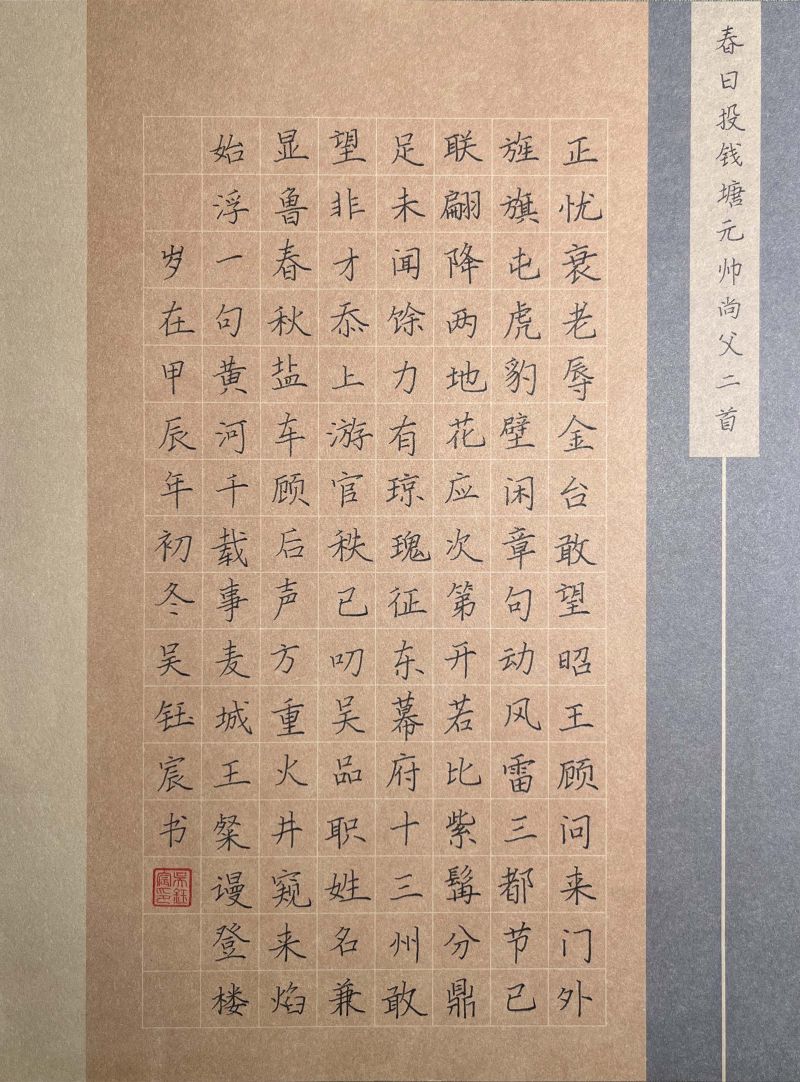 春日投钱塘元帅尚父二首
正忧衰老辱金台敢望昭王顾问来门外
旌旗屯虎豹壁闲章句动风雷三都节已
联翩降两地花应次第开若比紫髯分鼎
足未闻馀力有琼瑰征东幕府十三州敢
望非才忝上游官秩已叨吴品职姓名兼
显鲁春秋盐车顾后声方重火井窥来焰
始浮一句黄河千载事麦城王粲谩登楼
岁在甲辰年初冬吴钰宸书
吴钰宸印